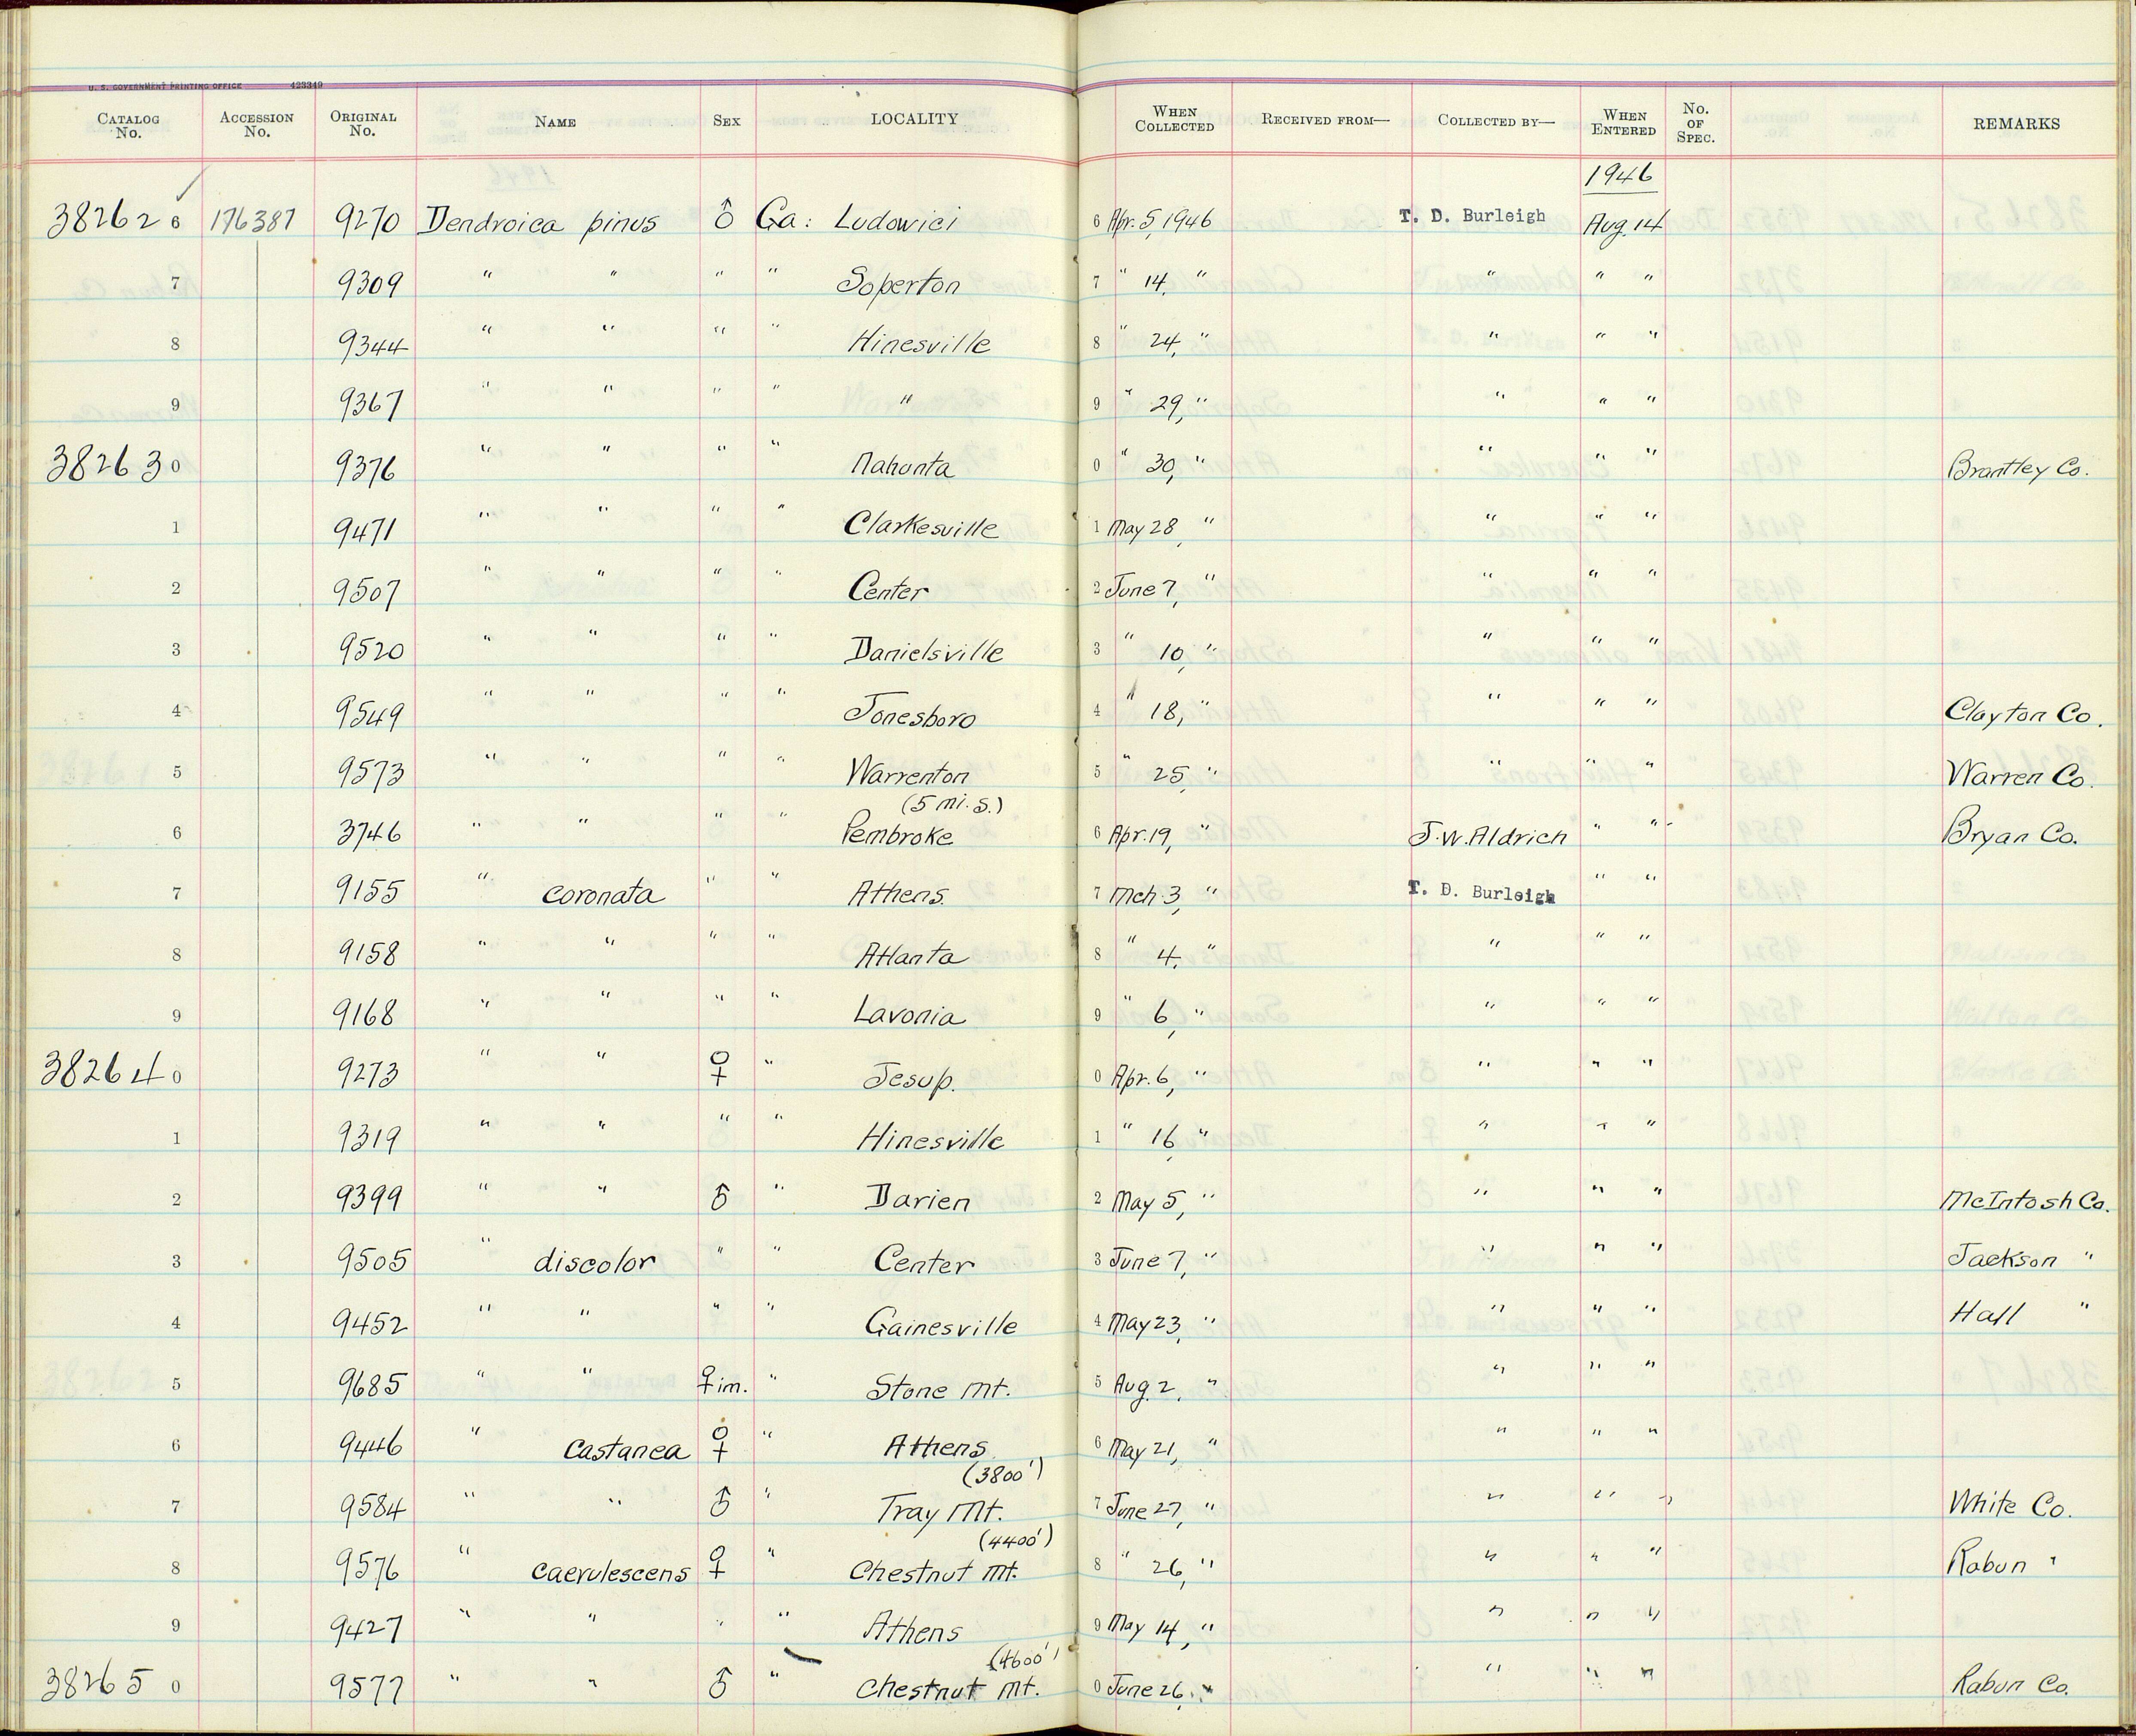 U. S. GOVERNMENT PRINTING OFFICE 423349
CATALOG No. ACCESSION No. ORIGINAL No. NAME SEX LOCALITY WHEN COLLECTED RECEIVED FROM— COLLECTED BY— WHEN ENTERED No. OF SPEC. REMARKS
1946
38262 6 176387 9270 Dendroica pinus ♂ Ga: Ludowici 6 Apr. 5, 1946 T. D. Burleigh Aug. 14
7 9309 " " " " Soperton 7 " 14, " " " "
8 9344 " " " " Hinesville 8 " 24, " " " "
9 9367 " " " " " 9 " 29, " " " "
38263 0 9376 " " " " Nahunta 0 " 30, " " " " Brantley Co.
1 9471 " " " " Clarkesville 1 May 28, " " " "
2 9507 " " " " Center 2 June 7, " " " "
3 9520 " " " " Danielsville 3 " 10, " " " "
4 9549 " " " " Jonesboro 4 " 18, " " " " Clayton Co.
5 9573 " " " " Warrenton 5 " 25, " " " " Warren Co.
(5 mi. S.)
6 3746 " " " " Pembroke 6 Apr. 19, " J. W. Aldrich " " Bryan Co.
7 9155 " coronata " " Athens. 7 Mch. 3, " T. D. Burleigh " "
8 9158 " " " " Atlanta 8 " 4, " " " "
9 9168 " " " " Lavonia 9 " 6, " " " "
38264 0 9273 " " ♀ " Jesup. 0 Apr. 6, " " " "
1 9319 " " " " Hinesville 1 " 16, " " " "
2 9399 " " ♂ " Darien 2 May 5, " " " " McIntosh Co.
3 9505 " discolor " " Center 3 June 7, " " " " Jackson "
4 9452 " " " " Gainesville 4 May 23, " " " " Hall "
5 9685 " " ♀ im. " Stone Mt. 5 Aug. 2, " " " "
6 9446 " castanea ♀ " Athens 6 May 21, " " " "
(3800')
7 9584 " " ♂ " Tray Mt. 7 June 27, " " " " White Co.
(4400')
8 9576 " caerulescens ♀ " Chestnut Mt. 8 " 26, " " " " Rabun "
9 9427 " " " " Athens 9 May 14, " " " "
(4600')
38265 0 9577 " " ♂ " Chestnut Mt. 0 June 26, " " " " Rabun Co.